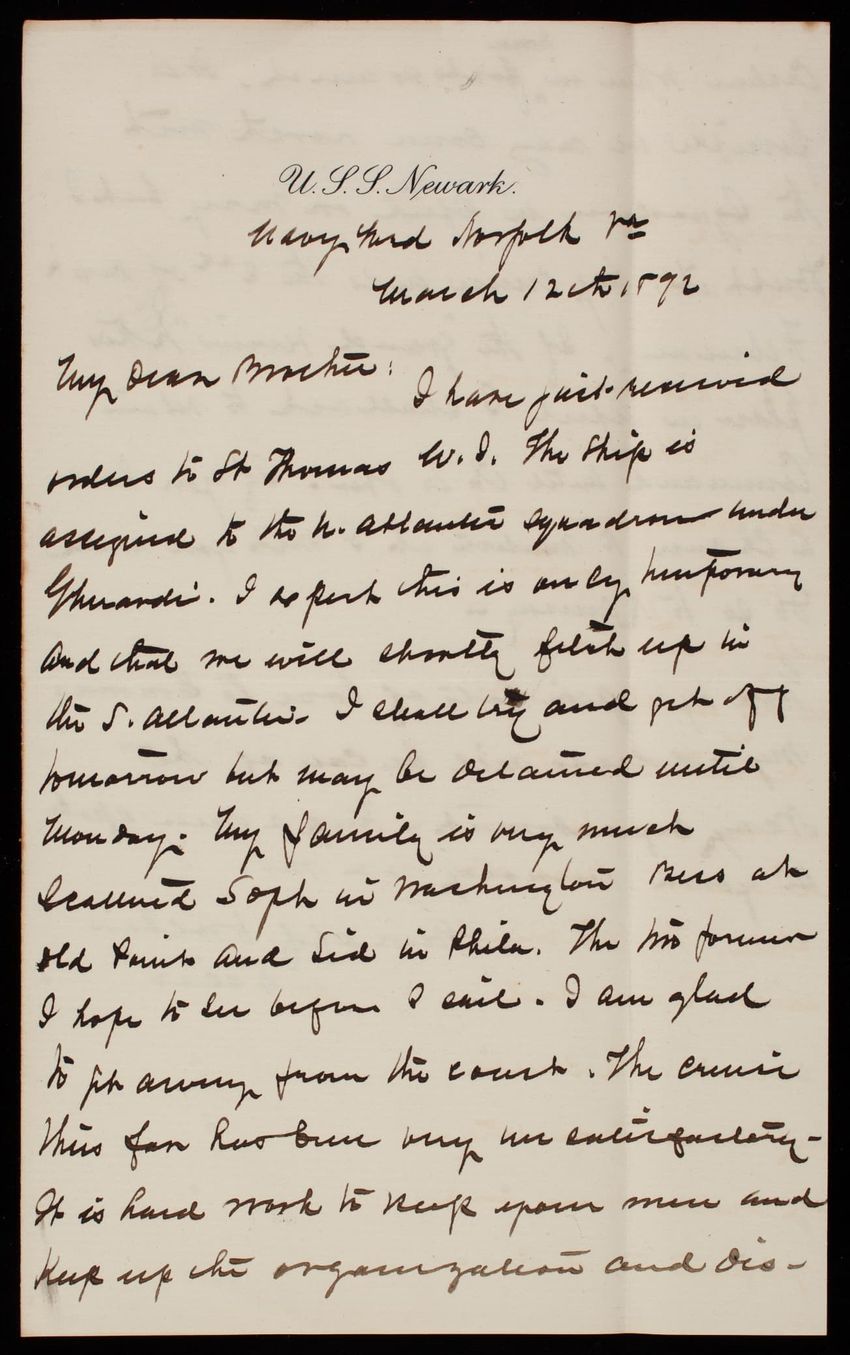 U.S.S. Newark.
Navy Yard Norfolk Va
March 12th 1892
My Dear Brother:
I have just received
orders to St Thomas W.I. The Ship is
assigned to the N. Atlantic Squadron under
Gherardi. I expect this is only temporary
and that we will shortly fetch up in
the S. Atlantic. I shall try and get off
tomorrow but may be detained until
Monday. My family is very much
scattered Soph in Washington Bess at
Old Point and Sid in Phila. The two former
I hope to see before I sail. I am glad
to get away from the coast. The cruise
thus far has been very unsatisfactory-
It is hard work to keep your men and
keep up the organization and dis-